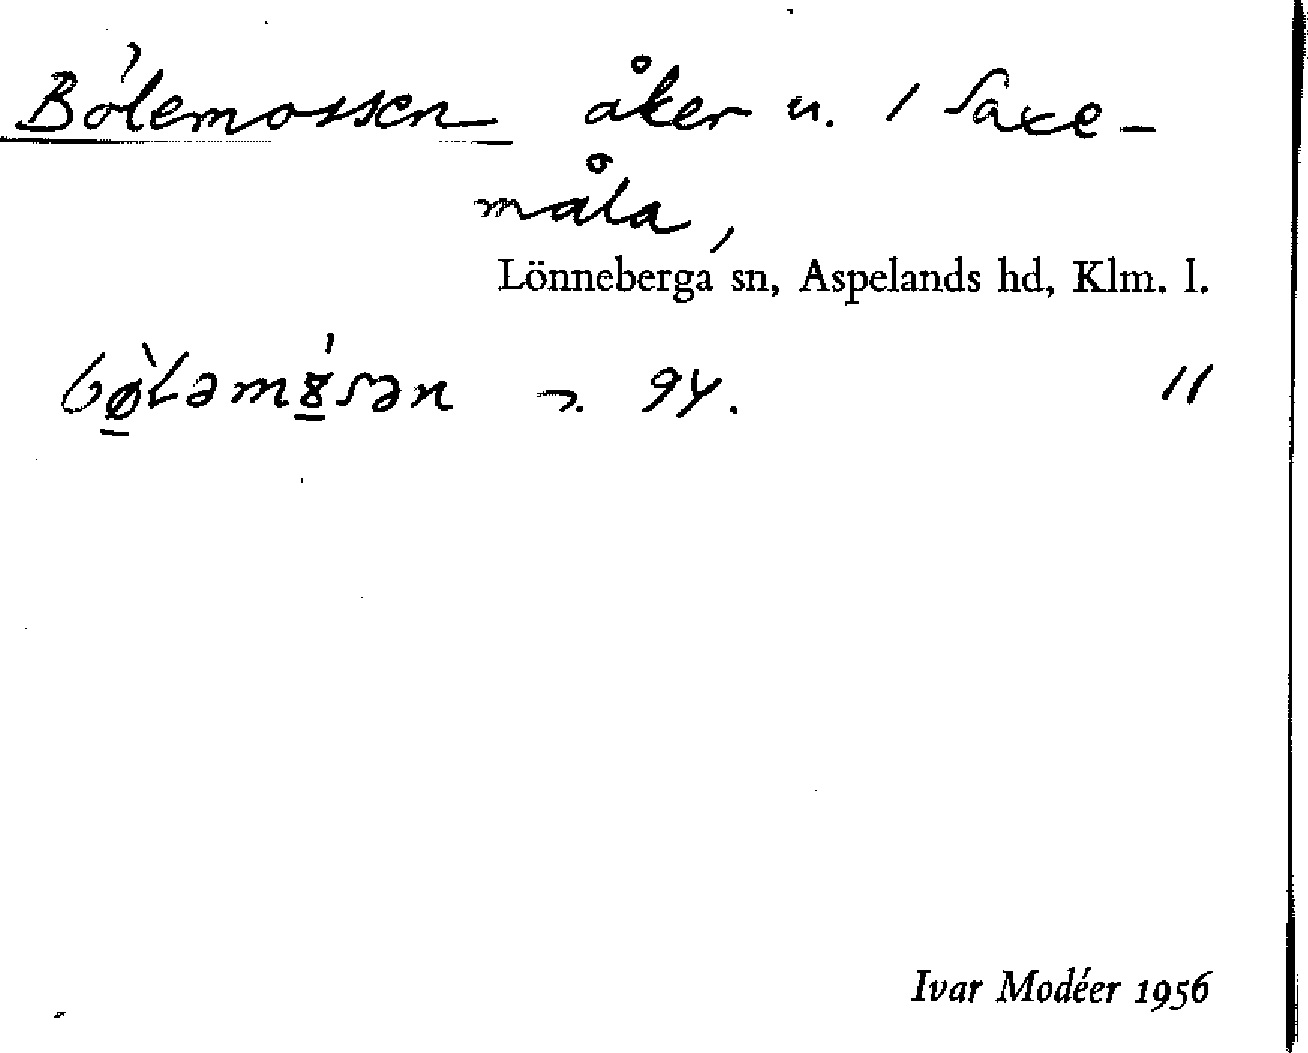 Bölemossen åker u. 1 Saxe-
måla,
Lönneberga sn, Aspelands hd, Klm. l.
94. 11
Ivar Modéer 1956